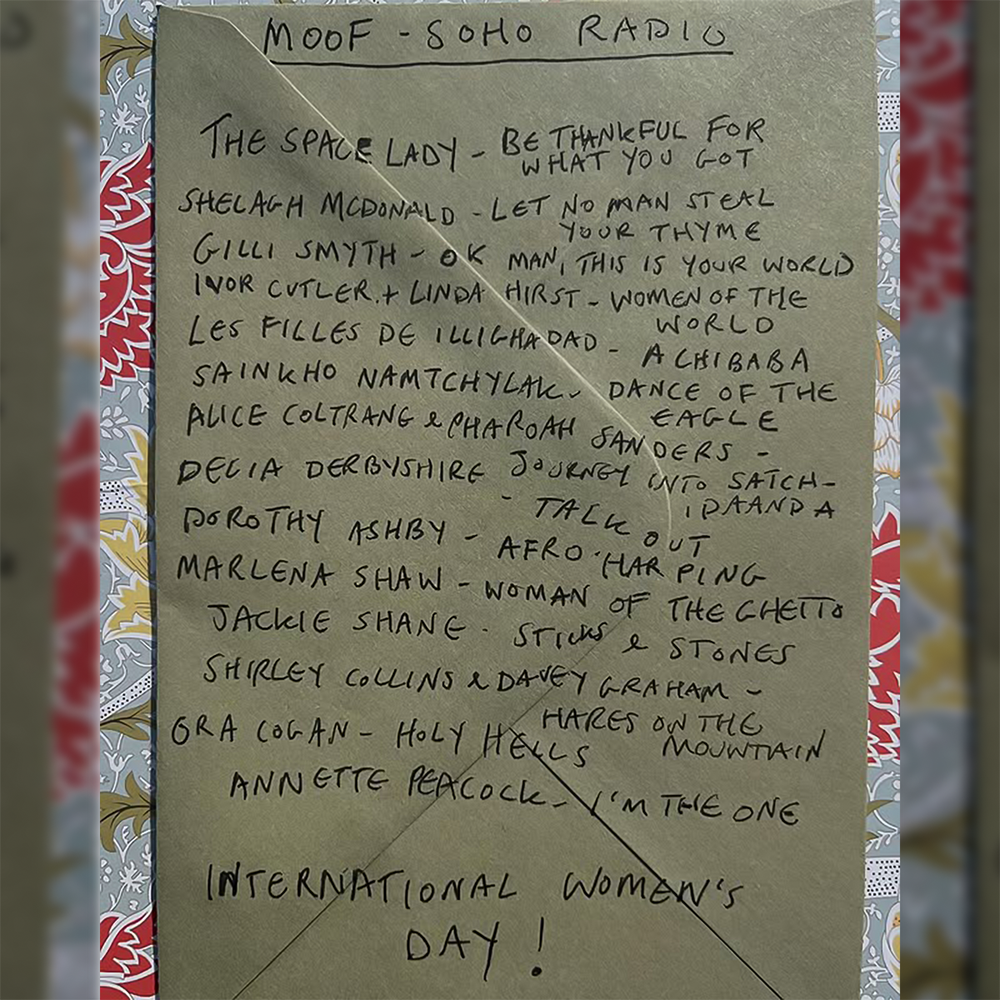 MOOF - SOHO RADIO
THE SPACE LADY - BE THANKFUL FOR
WHAT YOU GOT
SHELAGH MCDONALD - LET NO MAN STEAL
YOUR THYME
GILLI SMYTH - OK MAN, THIS IS YOUR WORLD
IVOR CUTLER + LINDA HIRST - WOMEN OF THE
WORLD
LES FILLES DE ILLIGHADAD -
ACHIBABA
SAINKHO NAMTCHYLAK - DANCE OF THE
EAGLE
ALICE COLTRANE & PHAROAH SANDERS -
JOURNEY INTO SATCH-
IDAANDA
DELIA DERBYSHIRE - TALK OUT
DOROTHY ASHBY - AFRO-HARPING
MARLENA SHAW - WOMAN OF THE GHETTO
JACKIE SHANE - STICKS & STONES
SHIRLEY COLLINS & DAVEY GRAHAM -
HARES ON THE
MOUNTAIN
ORA COGAN - HOLY HELLS
ANNETTE PEACOCK - I'M THE ONE
INTERNATIONAL WOMEN'S
DAY!